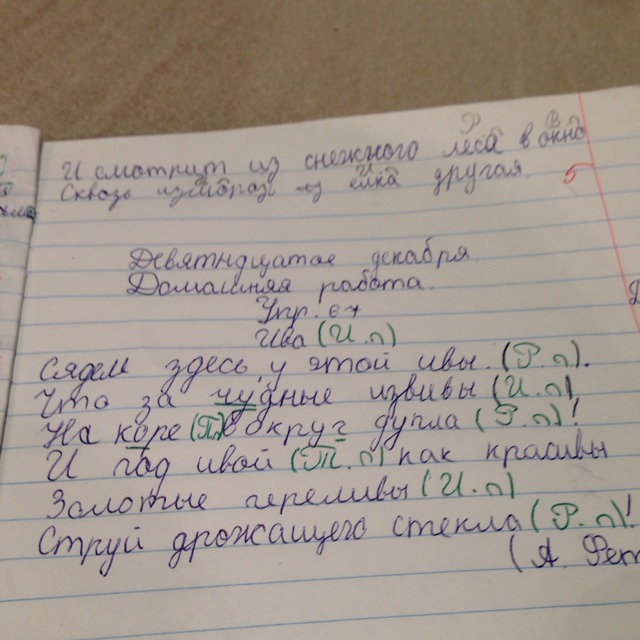 И смотрит из снежного леса в окно
Сквозь из ёлка другая.
5
Девятндцатое декабря.
Домашняя работа.
Упр. 67
Ива (И.п)
Сядем здесь, у этой ивы. (Р.п).
Что за чудные извивы (И.п)
На коре (П.п) вокруг дупла (Р.п)!
И под ивой (Т.п) как красивы
Золотые переливы (И.п)
Струй дрожащего стекла (Р.п)!
(А. Фет